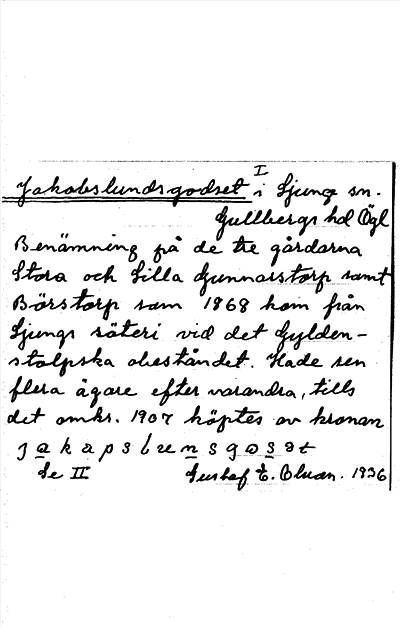 Jakobslundsgodset I i Ljungs sn.
Gullbergs hd Ögl
Benämning på de tre gårdarna
Stora och Lilla Gunnarstorp samt
Börstorp som 1868 kom från
Ljungs säteri vid det Gylden-
stolpska obeståndet. Hade sen
flera ägare efter varandra, tills
det omkr. 1907 köptes av kronan
jakapslunsgosət
Se II Gustaf E.
1936